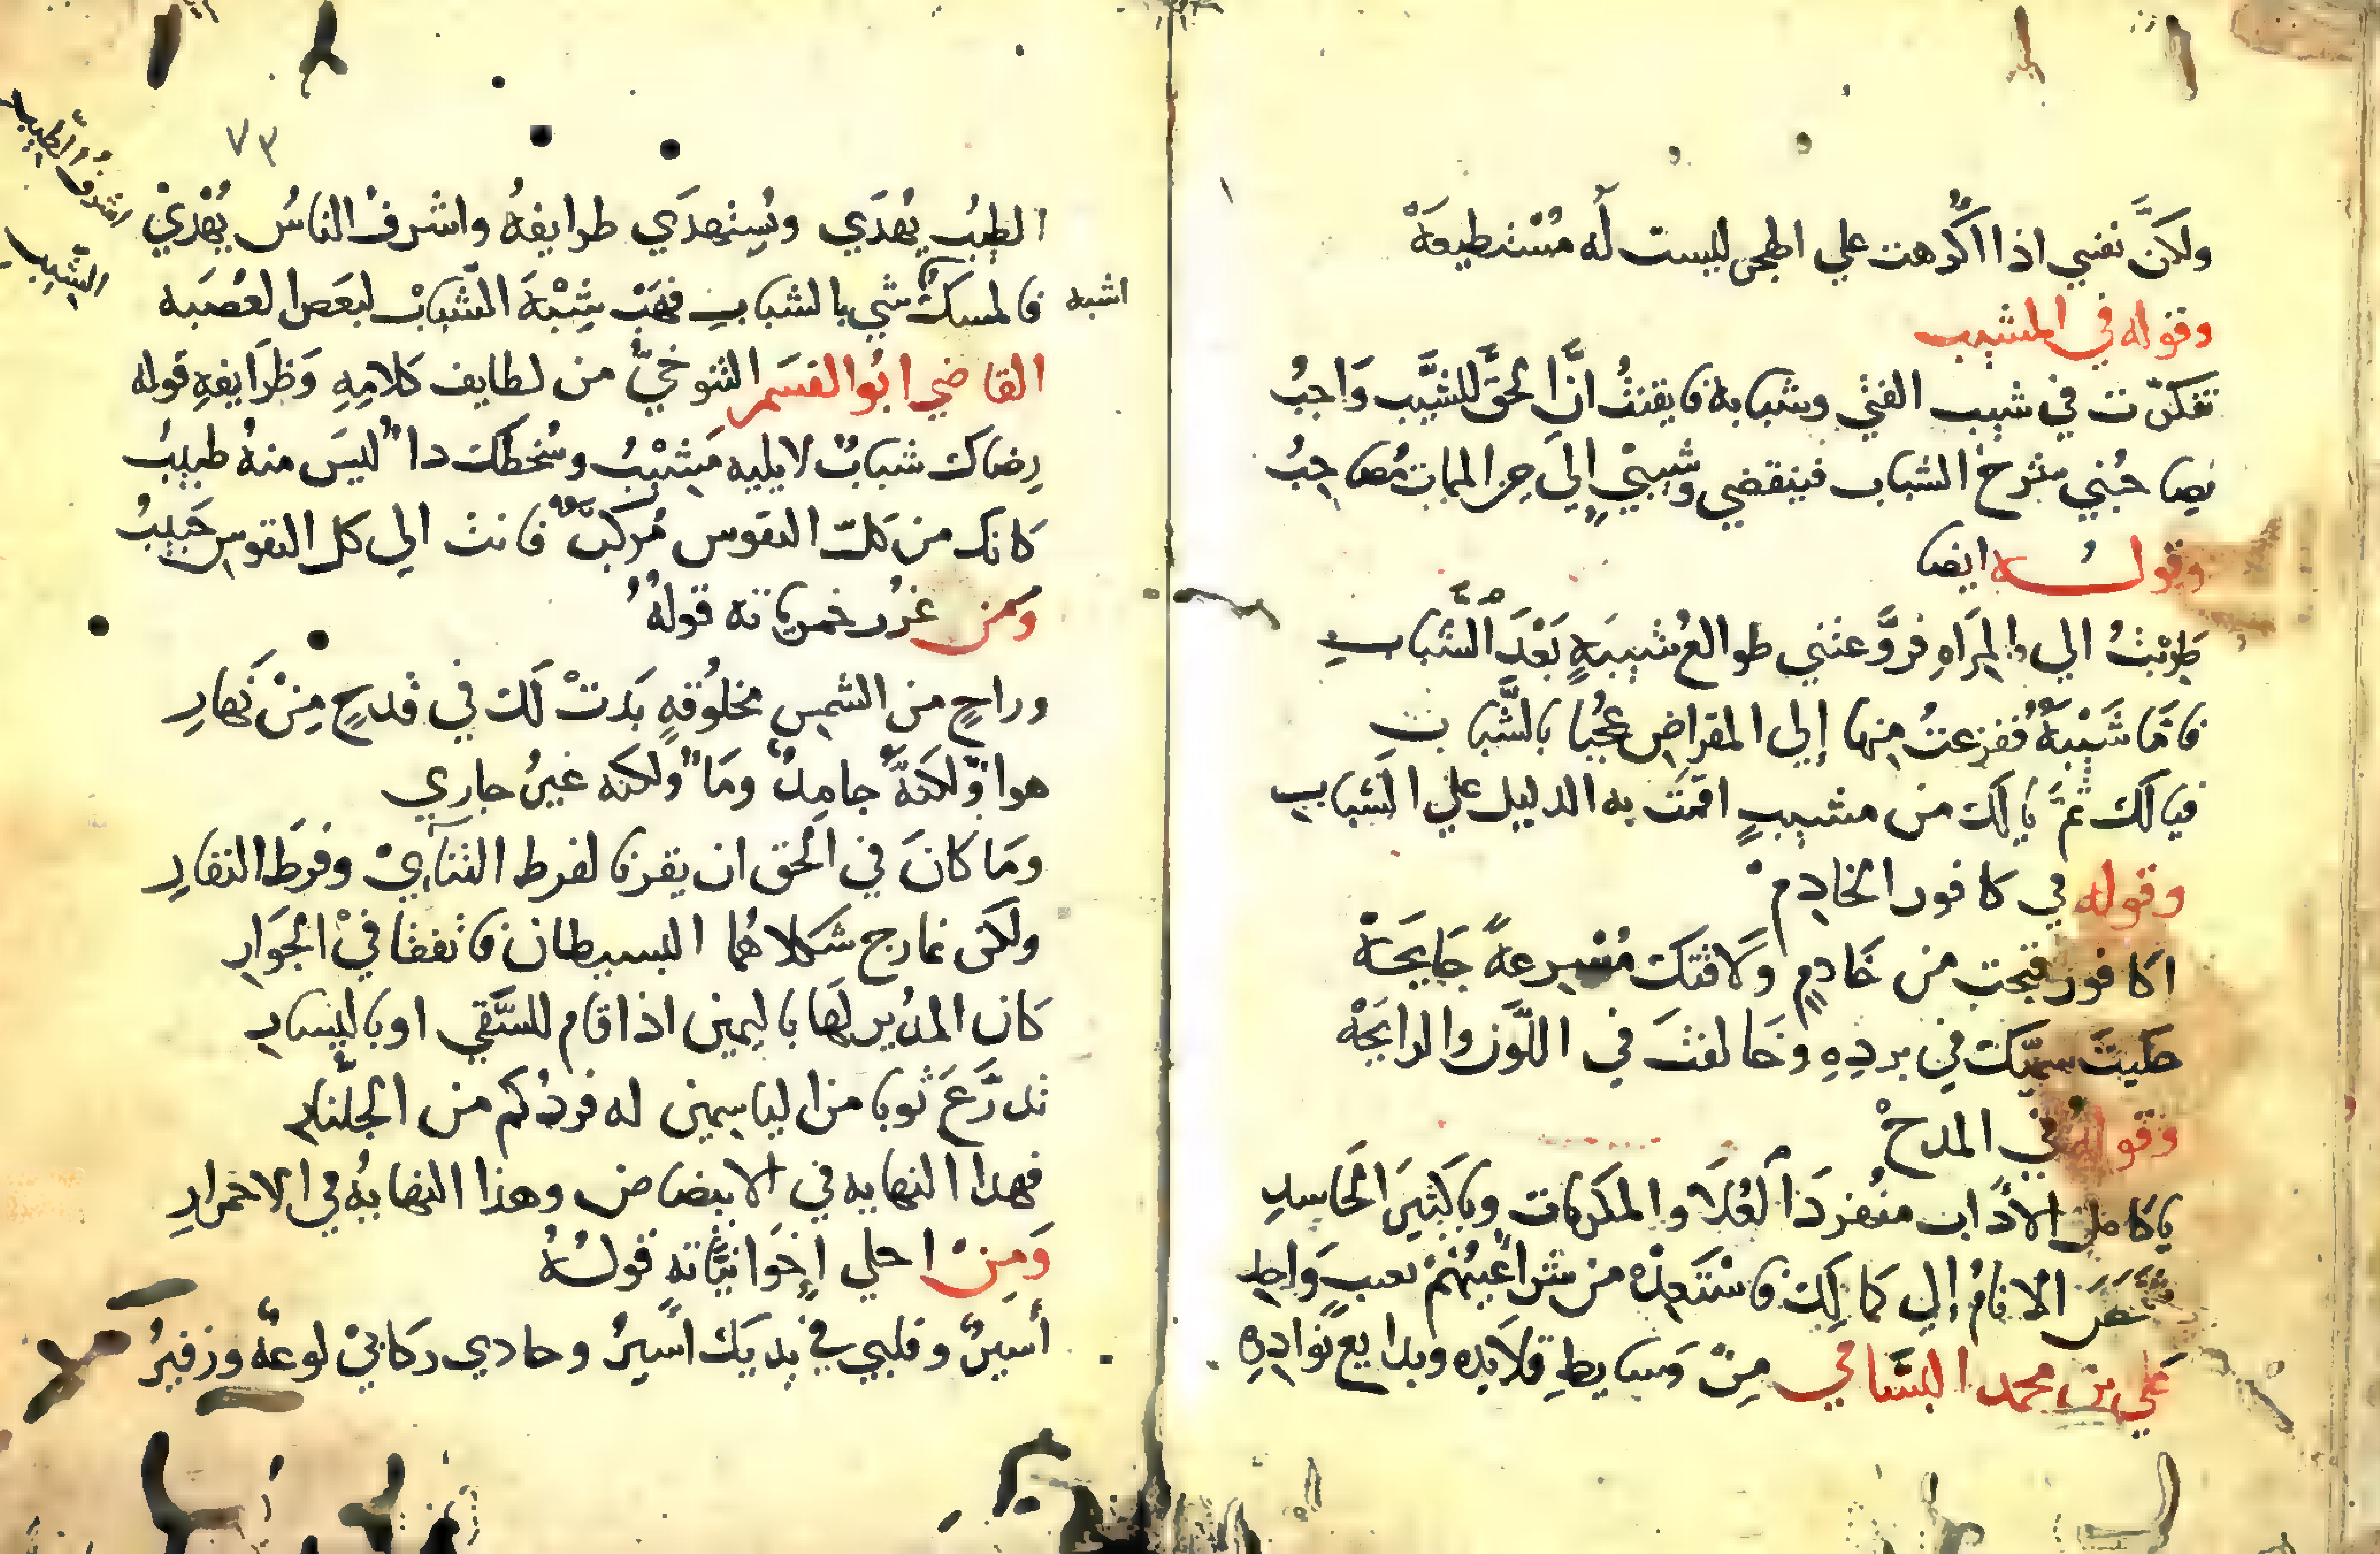 ولكنَّ نفسي اذا اكرهت علي الهجر ليست له مُسْتطيعَهْ
وقوله في المشيب
تفكرت في شيب الفتي وشبابه فايقنتُ انَّ الحقَّ للشَّيب وَاجبُ
يصاحبُني شرخ الشباب فينقضي وشيبيْ إليَ حين الممات مُصاحبُ
وقوله ايضا
طَرِبْتُ الي المِرَاهِ فروَّعتني طوالعُ شيبيَهٍ بَعْدَ الشَّبابِ
فامَّا شَيْبَهٌ ففزعتُ منها إلي المقراضِ عجُبا بالشَّبابِ
فيالَك ثمَّ يالَك من مشيبٍ اقمتَ به الدليل علي الشبابِ
وقوله في كافور الخادِم
اكافور قبحت من خَادِمٍ وَلاقتكَ مُسْرِعهً جَايحَهْ
حكيتَ سميَّكَ في بردِهِ وخَالفتَ في اللَّون والرايحَهْ
وقوله في المدحْ
ياكامل الادَاب منُفردَ العُلَا والمكرمات وياكثيرَ الحَاسِدِ
شخصَ الانامُ إلي كمالِكَ فاسْتعِذْ من شر اعْيُنهمْ بعيبٍ وَاحِدِ
عَلي بن محمد البسَّامي مِنْ وَسايطِ قلايده وبدايع نوادِرِه
٧٣
الطيبُ يُهدَي ويُستهدَي طرايفهُ واشرفُ الناسُ يُهْديْ
اشرفُ الطيبِ
الشيبِ
فالمسكُ شي بالشبابِ فهَبْ شِبْهَ الشَّبابْ لبعض العُصبَه
اشبه
القاضي ابُو القسَم التنوخيّ من لطايف كلامِهِ وَظرَايفهِ قوله
رِضاكَ شبابٌ لايليه مَشيْبُ وسُخطكَ داءٌ ليسَ منهُ طبيبُ
كانك من كلّ النفوس مُركبٌ فانت الي كل النفوس حَبيبُ
وَمن غُرَر خمرياته قولهُ
وراحٍ من الشمس مخلوُقهٍ بَدَتْ لَك في قدحٍ مِنْ نَهارِ
هواءٌ ولكنَّهُ جامدٌ ومَاءٌ ولكنه غيرُ جاري
ومَا كانَ في الحق ان يقرنا لفرط التنآيْ وفرطَ النفارِ
ولكن تمازج شكلاهُما البسيطان فاتفقا فيْ الجوَارِ
كان المدُير لَها باليمين اذا قام للسَّقي او باليسارِ
تدرَّعَ ثوبا من الياسمين له فردُكم من الجلَّنارِ
فهذا النهايه في الابيضاض وهذا النهايهُ في الاحمرارِ
وَمِنْ احلي اخَوَانيَّاته قولُهُ
أسَيرٌ وقلبي في يديَك اسَيرُ وحادي ركابيْ لوعهٌ وزفيرُ